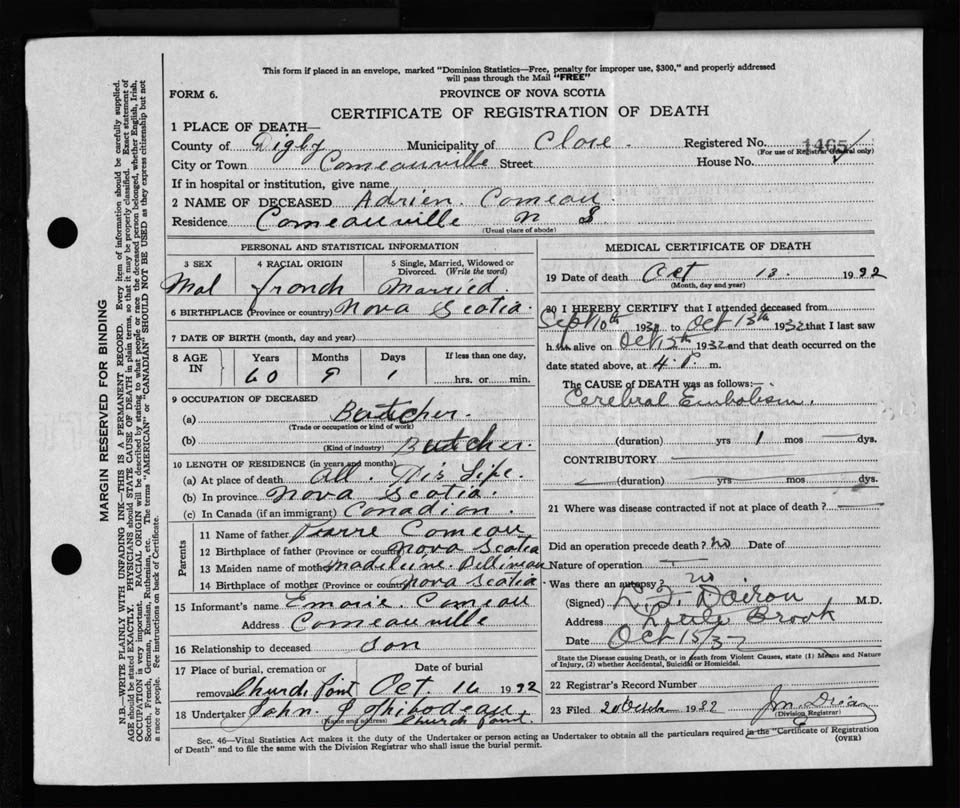 This form if placed in an envelope, marked "Dominion Statistics—Free, penalty for improper use, $300," and properly addressed
will pass through the Mail "FREE"
FORM 6.
PROVINCE OF NOVA SCOTIA
CERTIFICATE OF REGISTRATION OF DEATH
1 PLACE OF DEATH—
County of Digby Municipality of Clare. Registered No. 1465
(For use of Registrar General only)
City or Town Comeauville Street House No.
If in hospital or institution, give name
2 NAME OF DECEASED Adrien. Comeau.
Residence Comeauville N S
(Usual place of abode)
PERSONAL AND STATISTICAL INFORMATION
3 SEX 4 RACIAL ORIGIN 5 Single, Married, Widowed or
Divorced. (Write the word)
Mal french Married.
6 BIRTHPLACE (Province or country) Nova Scotia.
7 DATE OF BIRTH (month, day and year)
8 AGE IN Years Months Days If less than one day,
60 9 1 hrs. or min.
9 OCCUPATION OF DECEASED
(a) Butcher.
(Trade or occupation or kind of work)
(b) Butcher.
(Kind of industry)
10 LENGTH OF RESIDENCE (in years and months)
(a) At place of death all. His Life.
(b) In province Nova Scotia.
(c) In Canada (if an immigrant) Canadion.
Parents
11 Name of father Pearre Comeau
12 Birthplace of father (Province or country) Nova Scotia
13 Maiden name of mother Madeleine.
14 Birthplace of mother (Province or country) Nova Scotia.
15 Informant's name Emorie. Comeau
Address Comeauville
16 Relationship to deceased son
17 Place of burial, cremation or Date of burial
removal Church Point Oct. 16 1932
18 Undertaker John. J Thibodeau
(Name and address) Church Point.
MEDICAL CERTIFICATE OF DEATH
19 Date of death Oct 13. 1932
(Month, day and year)
20 I HEREBY CERTIFY that I attended deceased from
Sept 10th 1932 to Oct 13th 1932 that I last saw
him alive on Oct 13th 1932 and that death occurred on the
date stated above, at 4. P. m.
The CAUSE OF DEATH was as follows:—
Cerebral Embolism.
(duration) yrs 1 mos — dys.
CONTRIBUTORY —
(duration) yrs mos dys.
21 Where was disease contracted if not at place of death? —
Did an operation precede death? no Date of
Nature of operation —
Was there an autopsy? no
(Signed) Doiron M.D.
Address Little Brook
Date Oct 15/32
State the Disease causing Death, or in death from Violent Causes, state (1) Means and Nature
of Injury, (2) whether Accidental, Suicidal or Homicidal.
22 Registrar's Record Number
23 Filed 20 Octob 1932
(Division Registrar)
Sec. 46—Vital Statistics Act makes it the duty of the Undertaker or person acting as Undertaker to obtain all the particulars required in the "Certificate of Registration
of Death" and to file the same with the Division Registrar who shall issue the burial permit.
(OVER)
MARGIN RESERVED FOR BINDING
N.B.—WRITE PLAINLY WITH UNFADING INK—THIS IS A PERMANENT RECORD. Every item of information should be carefully supplied.
AGE should be stated EXACTLY. PHYSICIANS should STATE CAUSE OF DEATH in plain terms, so that it may be properly classified. Exact statement of
OCCUPATION is very important. RACIAL ORIGIN will be described by stating to what people or race the deceased person belonged, whether English, Irish,
Scotch, French, German, Russian, Ruthenian, etc. The terms "AMERICAN" or "CANADIAN" SHOULD NOT BE USED as they express citizenship but not
a race or people. See instructions on back of Certificate.